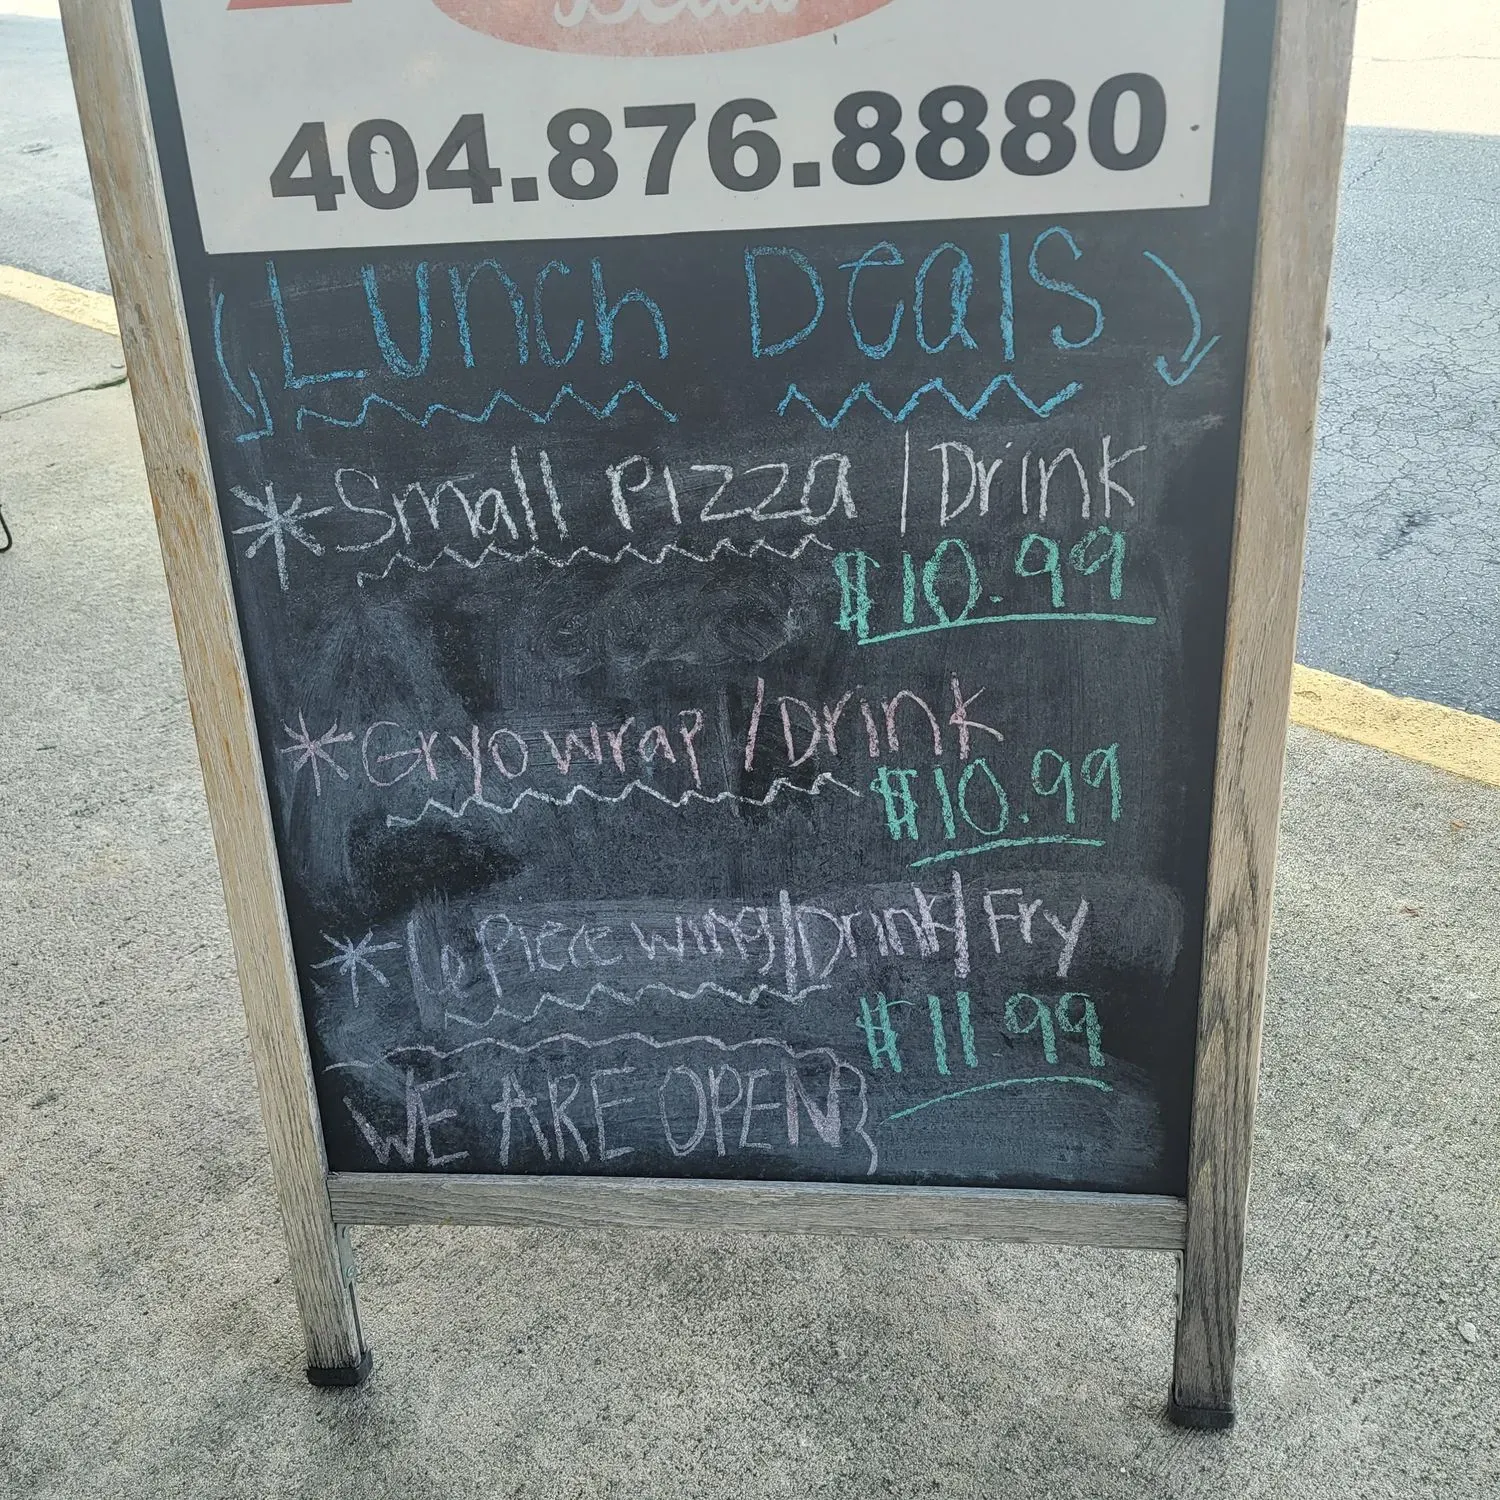 404.876.8880
Lunch Deals
*Small Pizza | Drink
$10.99
*Gryo wrap / Drink
$10.99
*6 Piece wing/Drink/Fry
$11.99
WE ARE OPEN